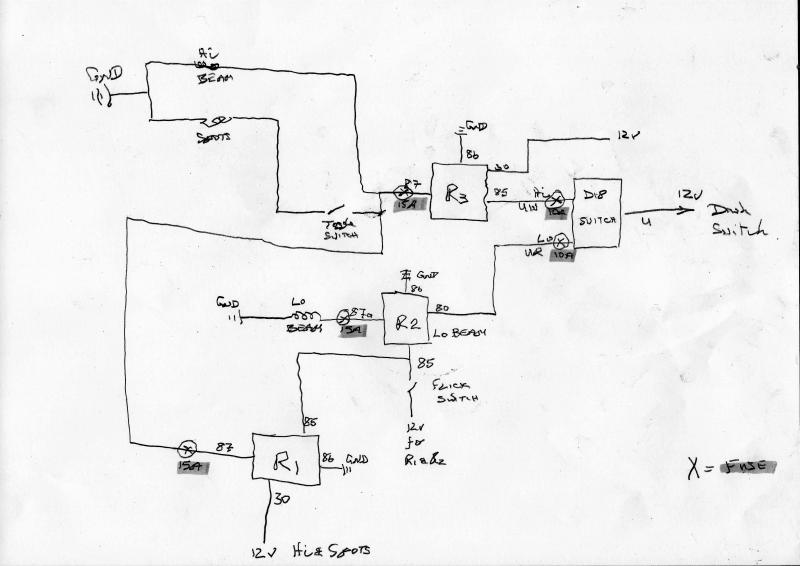 Hi
BEAM
GND
SPOTS
GND
86
30
12v
87
R3
85
Hi
DIP
SWITCH
15A
UW
10A
12v
Dash
Switch
U
TOGGLE
SWITCH
Lo
UR
10A
GND
86
GND
Lo
87a
R2
80
BEAM
15A
Lo BEAM
85
FLICK
SWITCH
85
12v
for
R1&R2
87
R1
86
GND
15A
30
X = FUSE
12v Hi & SPOTS